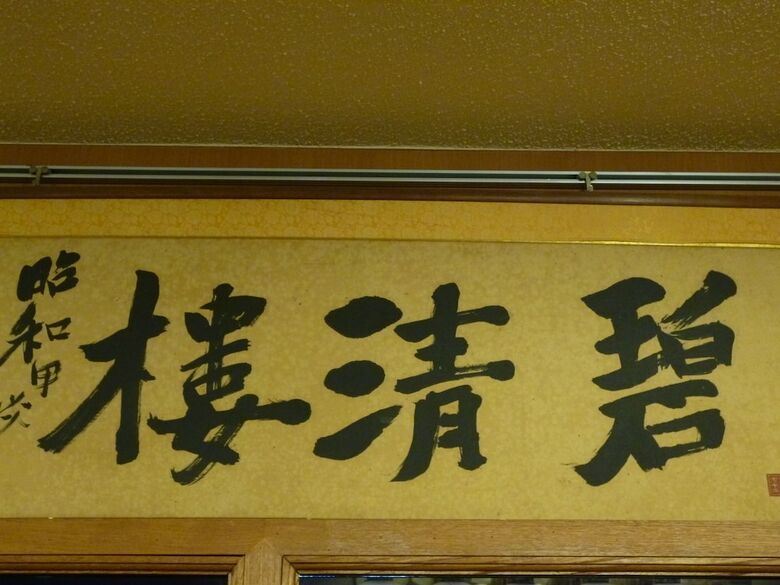 碧清樓
昭和甲